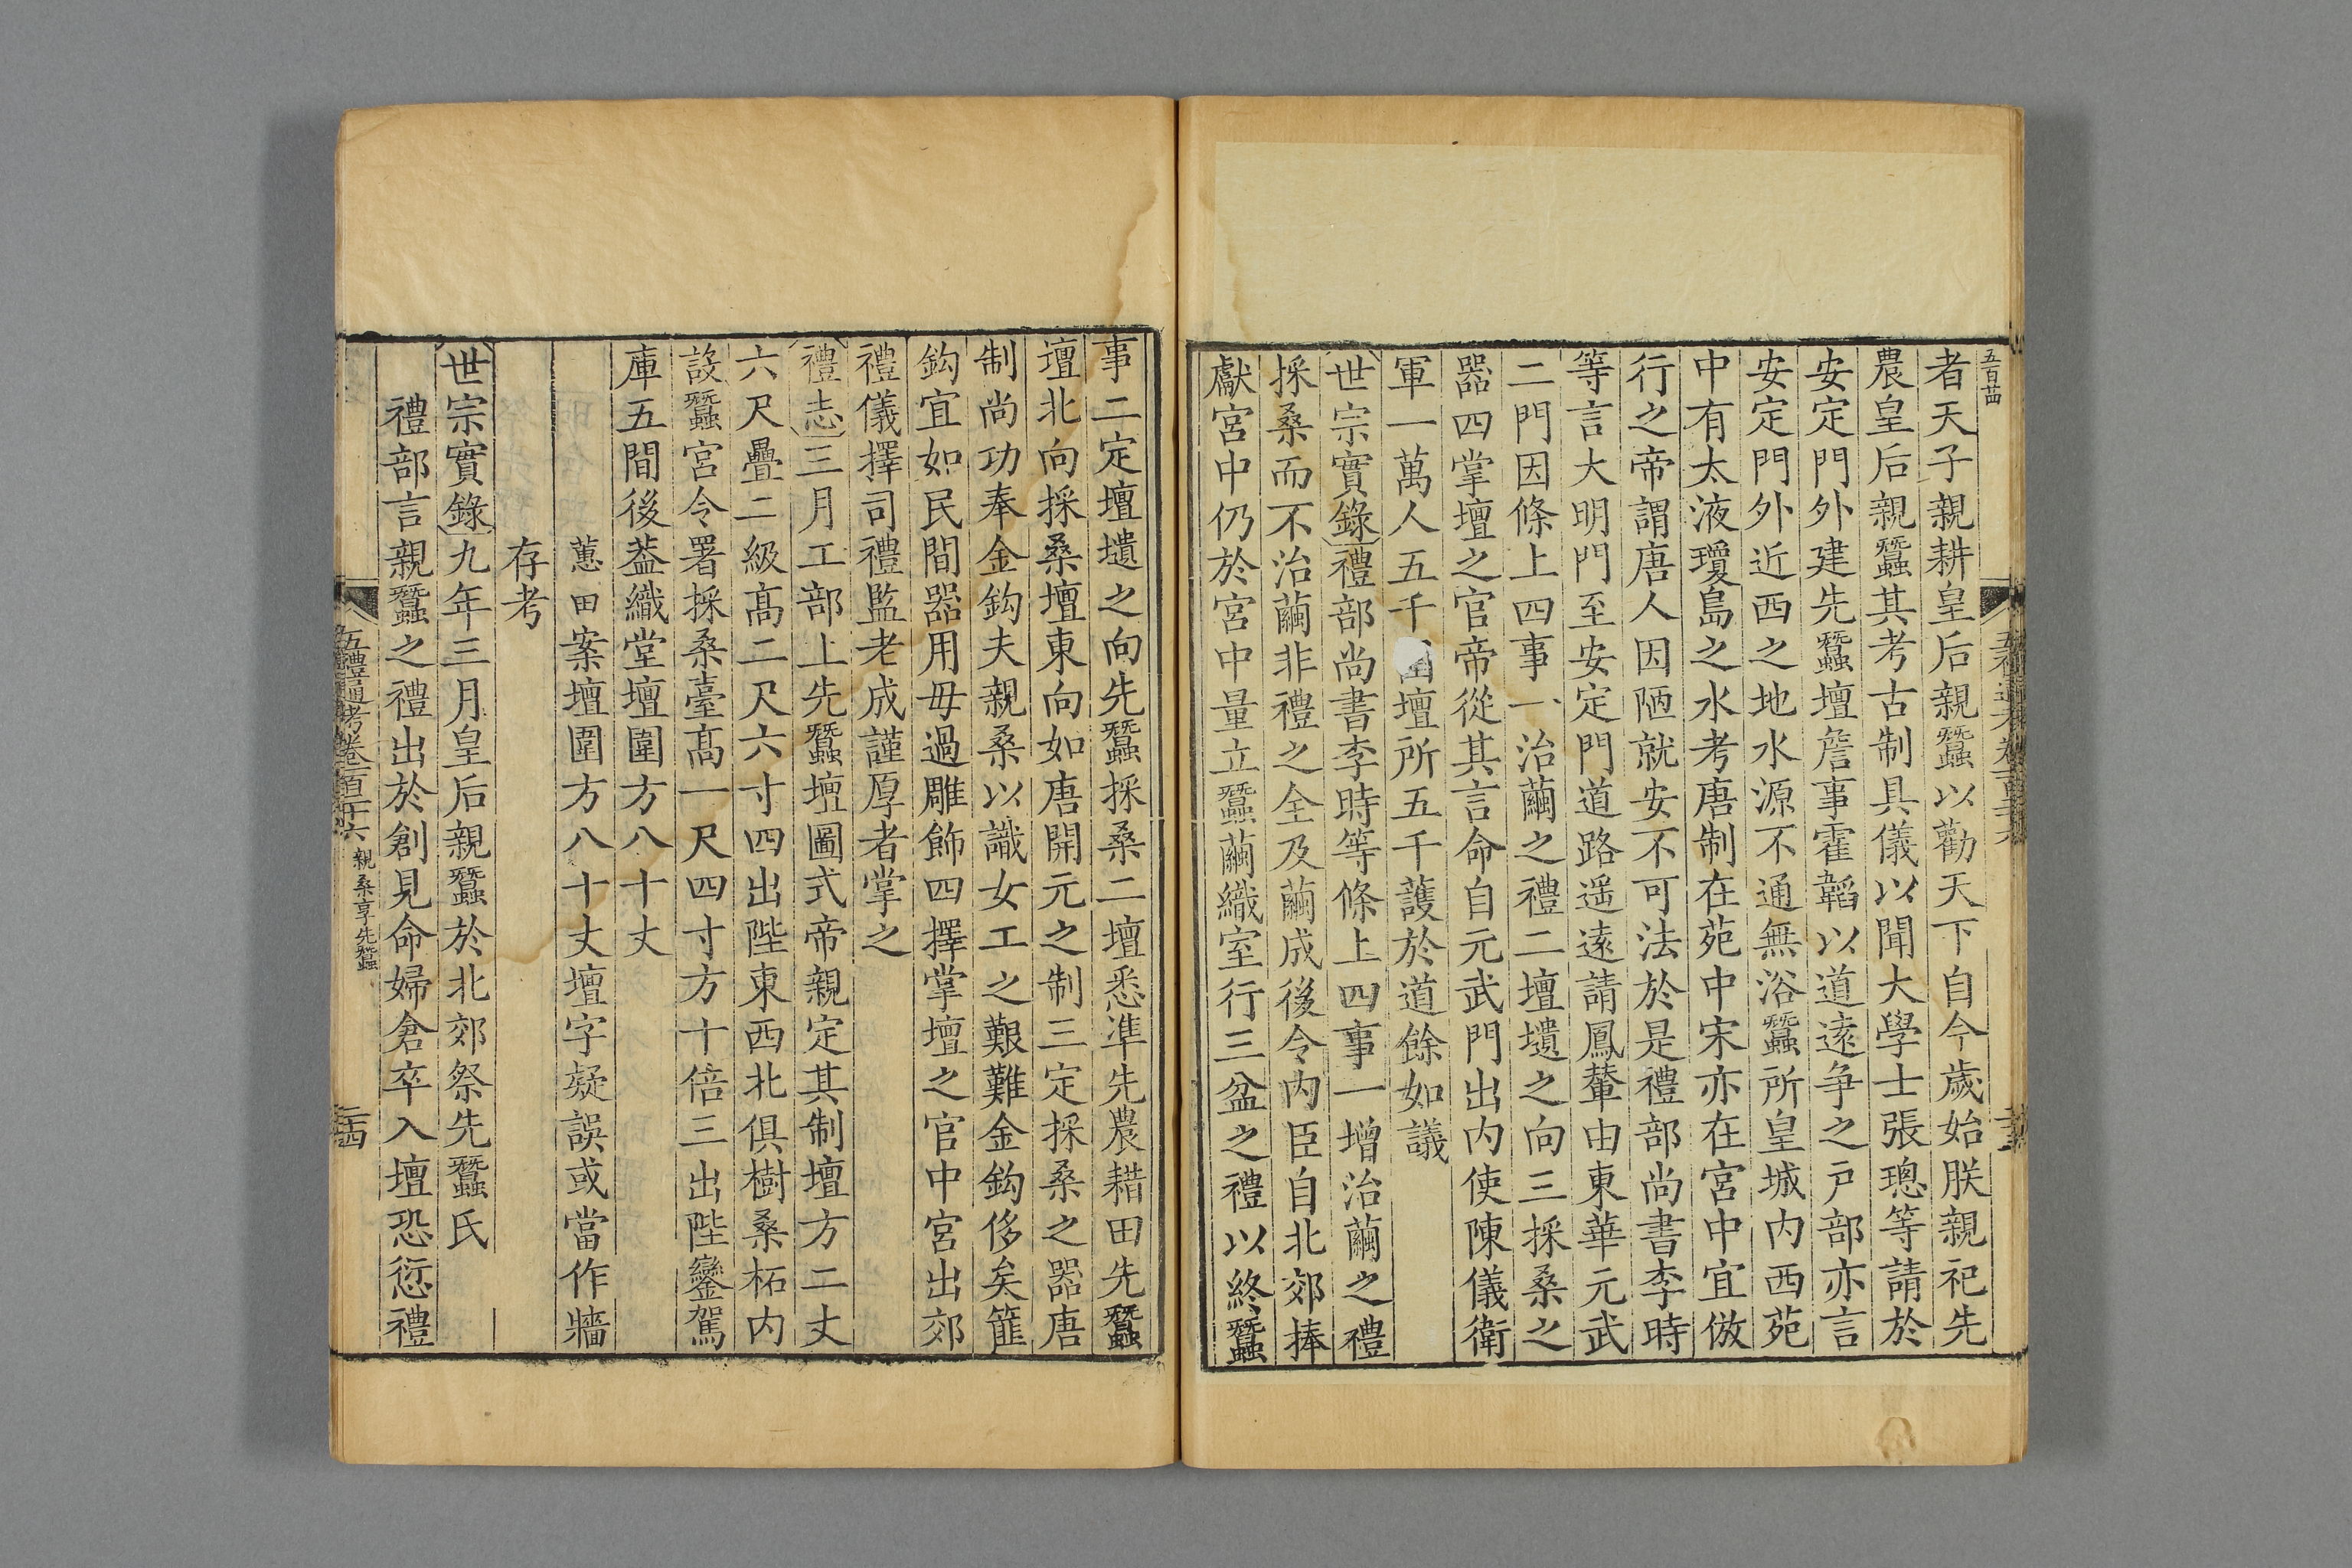 五百
者天子親耕皇后親蠶以勸天下自今歲始朕親祀先
農皇后親蠶其考古制具儀以聞大學士張璁等請於
安定門外建先蠶壇詹事霍韜以道遠争之戸部亦言
安定門外近西之地水源不通無浴蠶所皇城内西苑
中有太液瓊島之水考唐制在苑中宋亦在宮中宜倣
行之帝謂唐人因陋就安不可法於是禮部尚書李時
等言大明門至安定門道路遥遠請鳳輦由東華元武
二門因條上四事一治繭之禮二壇壝之向三採桑之
器四掌壇之官帝從其言命自元武門出内使陳儀衛
軍一萬人五千壇所五千護於道餘如議
世宗實錄禮部尚書李時等條上四事一增治繭之禮
採桑而不治繭非禮之全及繭成後令内臣自北郊捧
獻宮中仍於宮中量立蠶繭織室行三盆之禮以終蠶
事二定壇壝之向先蠶採桑二壇悉凖先農耤田先蠶
壇北向採桑壇東向如唐開元之制三定採桑之器唐
制尚功奉金鈎夫親桑以識女工之艱難金鈎侈矣筐
鈎宜如民間器用毋過雕飾四擇掌壇之官中宮出郊
禮儀擇司禮監老成謹厚者掌之
禮志三月工部上先蠶壇圖式帝親定其制壇方二丈
六尺疊二級髙二尺六寸四出陛東西北俱樹桑柘内
設蠶宮令署採桑臺髙一尺四寸方十倍三出陛鑾駕
庫五間後葢織堂壇圍方八十丈
蕙田案壇圍方八十丈壇字疑誤或當作牆
存考
世宗實錄九年三月皇后親蠶於北郊祭先蠶氏
禮部言親蠶之禮出於創見命婦倉卒入壇恐愆禮
五禮通考卷一百二十六 親桑享先蠶 二十四